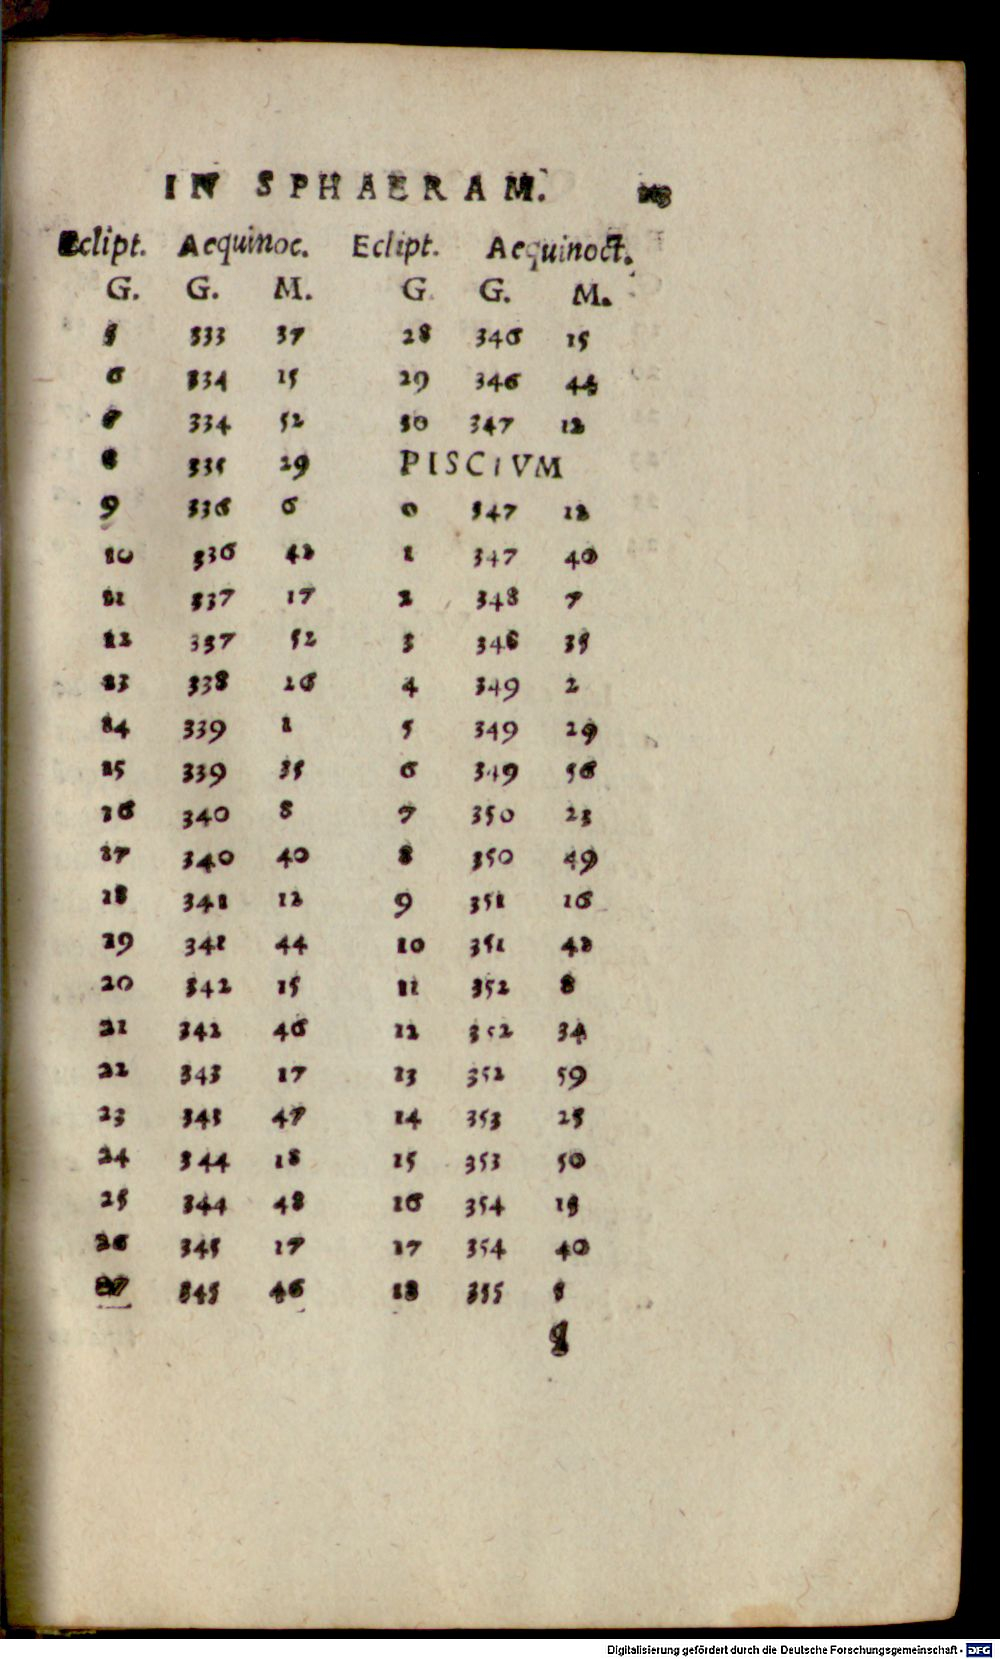 IN SPHAERAM.
Eclipt. Aequinoc. Eclipt. Aequinoct.
G. G. M. G G. M.
5 333 37 28 346 15
6 334 15 29 346 44
7 334 52 30 347 12
8 335 29 PISCIVM
9 336 6 0 347 12
10 336 42 1 347 40
11 337 17 2 348 7
12 337 52 3 348 35
13 338 26 4 349 2
14 339 1 5 349 29
15 339 35 6 349 56
16 340 8 7 350 23
17 340 40 8 350 49
18 341 12 9 351 16
19 341 44 10 351 42
20 342 15 11 352 8
21 342 46 12 352 34
22 343 17 13 352 59
23 343 47 14 353 25
24 344 18 15 353 50
25 344 48 16 354 15
26 345 17 17 354 40
27 345 46 18 355 5
Digitalisierung gefördert durch die Deutsche Forschungsgemeinschaft - DFG